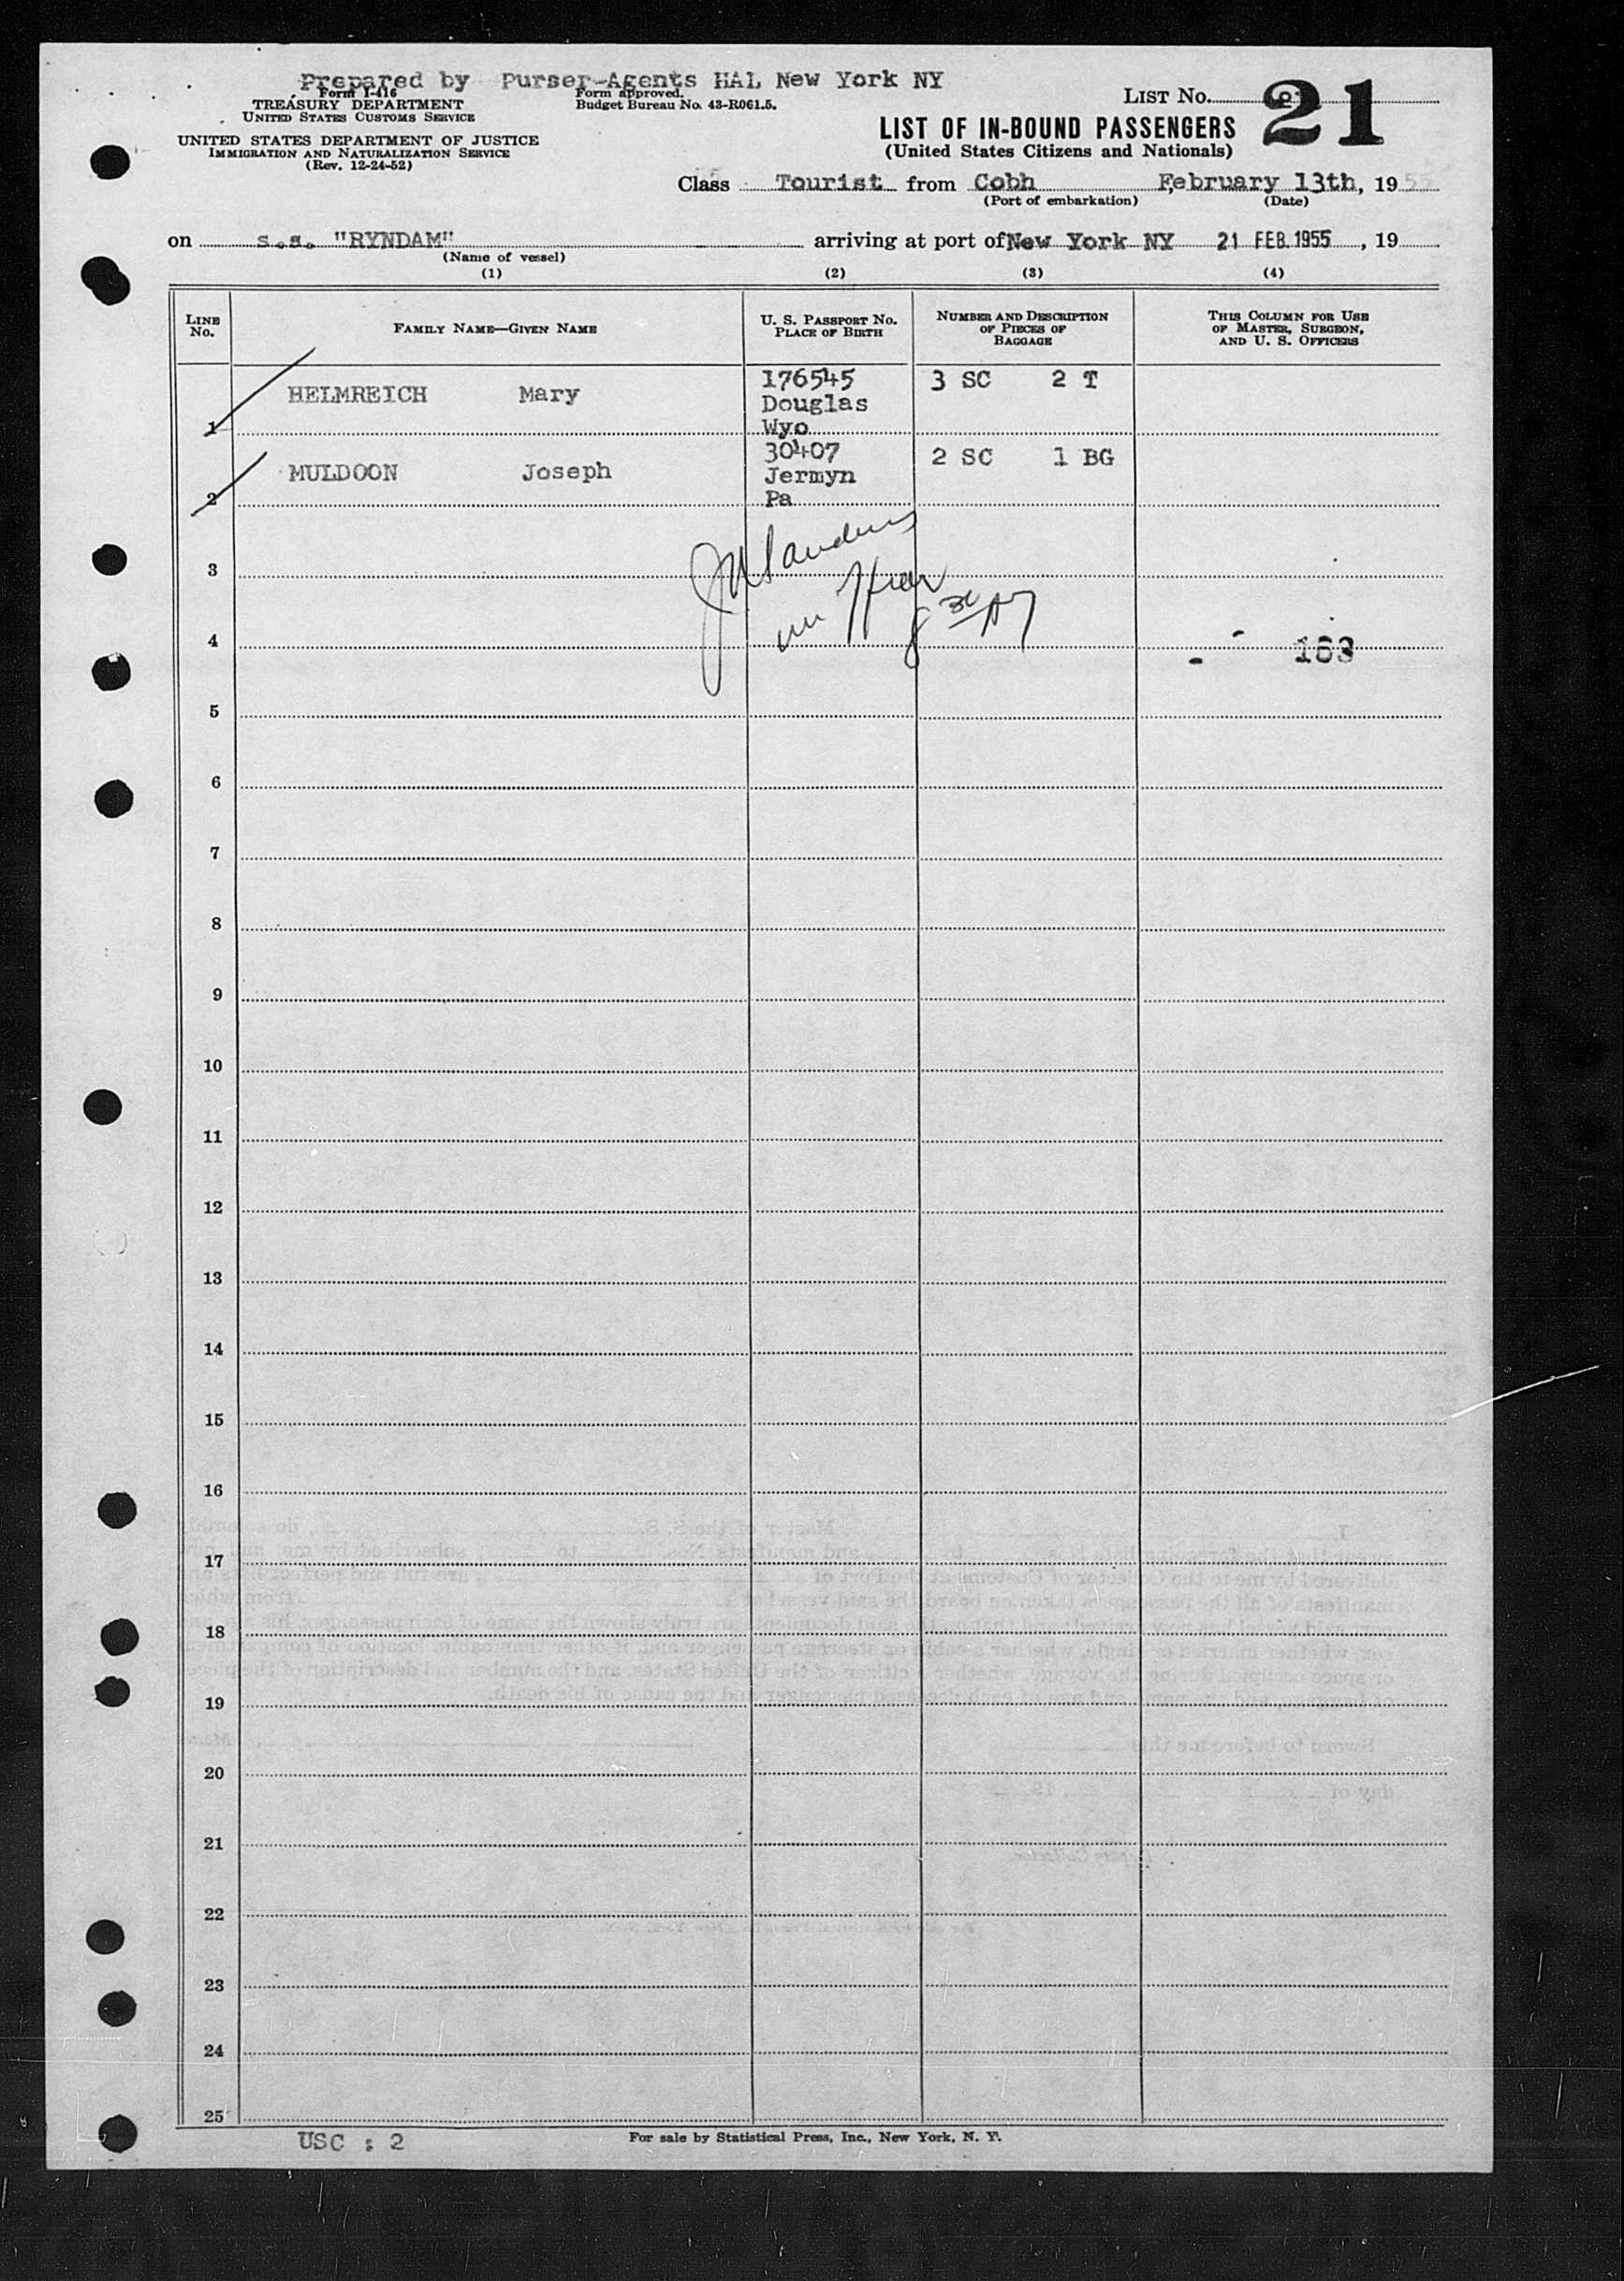 Prepared by Purser-Agents HAL New York NY
Form I-416
TREASURY DEPARTMENT
UNITED STATES CUSTOMS SERVICE
UNITED STATES DEPARTMENT OF JUSTICE
IMMIGRATION AND NATURALIZATION SERVICE
(Rev. 12-24-52)
Form approved.
Budget Bureau No. 43-R061.5.
LIST No. 21
LIST OF IN-BOUND PASSENGERS
(United States Citizens and Nationals)
Class Tourist from Cobh February 13th, 1955
(Port of embarkation) (Date)
on s.s. "RYNDAM" arriving at port of New York NY 21 FEB. 1955, 19
(Name of vessel)
(1) (2) (3) (4)
LINE No. FAMILY NAME—GIVEN NAME U. S. PASSPORT No. PLACE OF BIRTH NUMBER AND DESCRIPTION OF PIECES OF BAGGAGE THIS COLUMN FOR USE OF MASTER, SURGEON, AND U. S. OFFICERS
1 HELMREICH Mary 176545 Douglas Wyo 3 SC 2 T
2 MULDOON Joseph 30407 Jermyn Pa 2 SC 1 BG
3
4 163
5
6
7
8
9
10
11
12
13
14
15
16
17
18
19
20
21
22
23
24
25
USC : 2
For sale by Statistical Press, Inc., New York, N. Y.